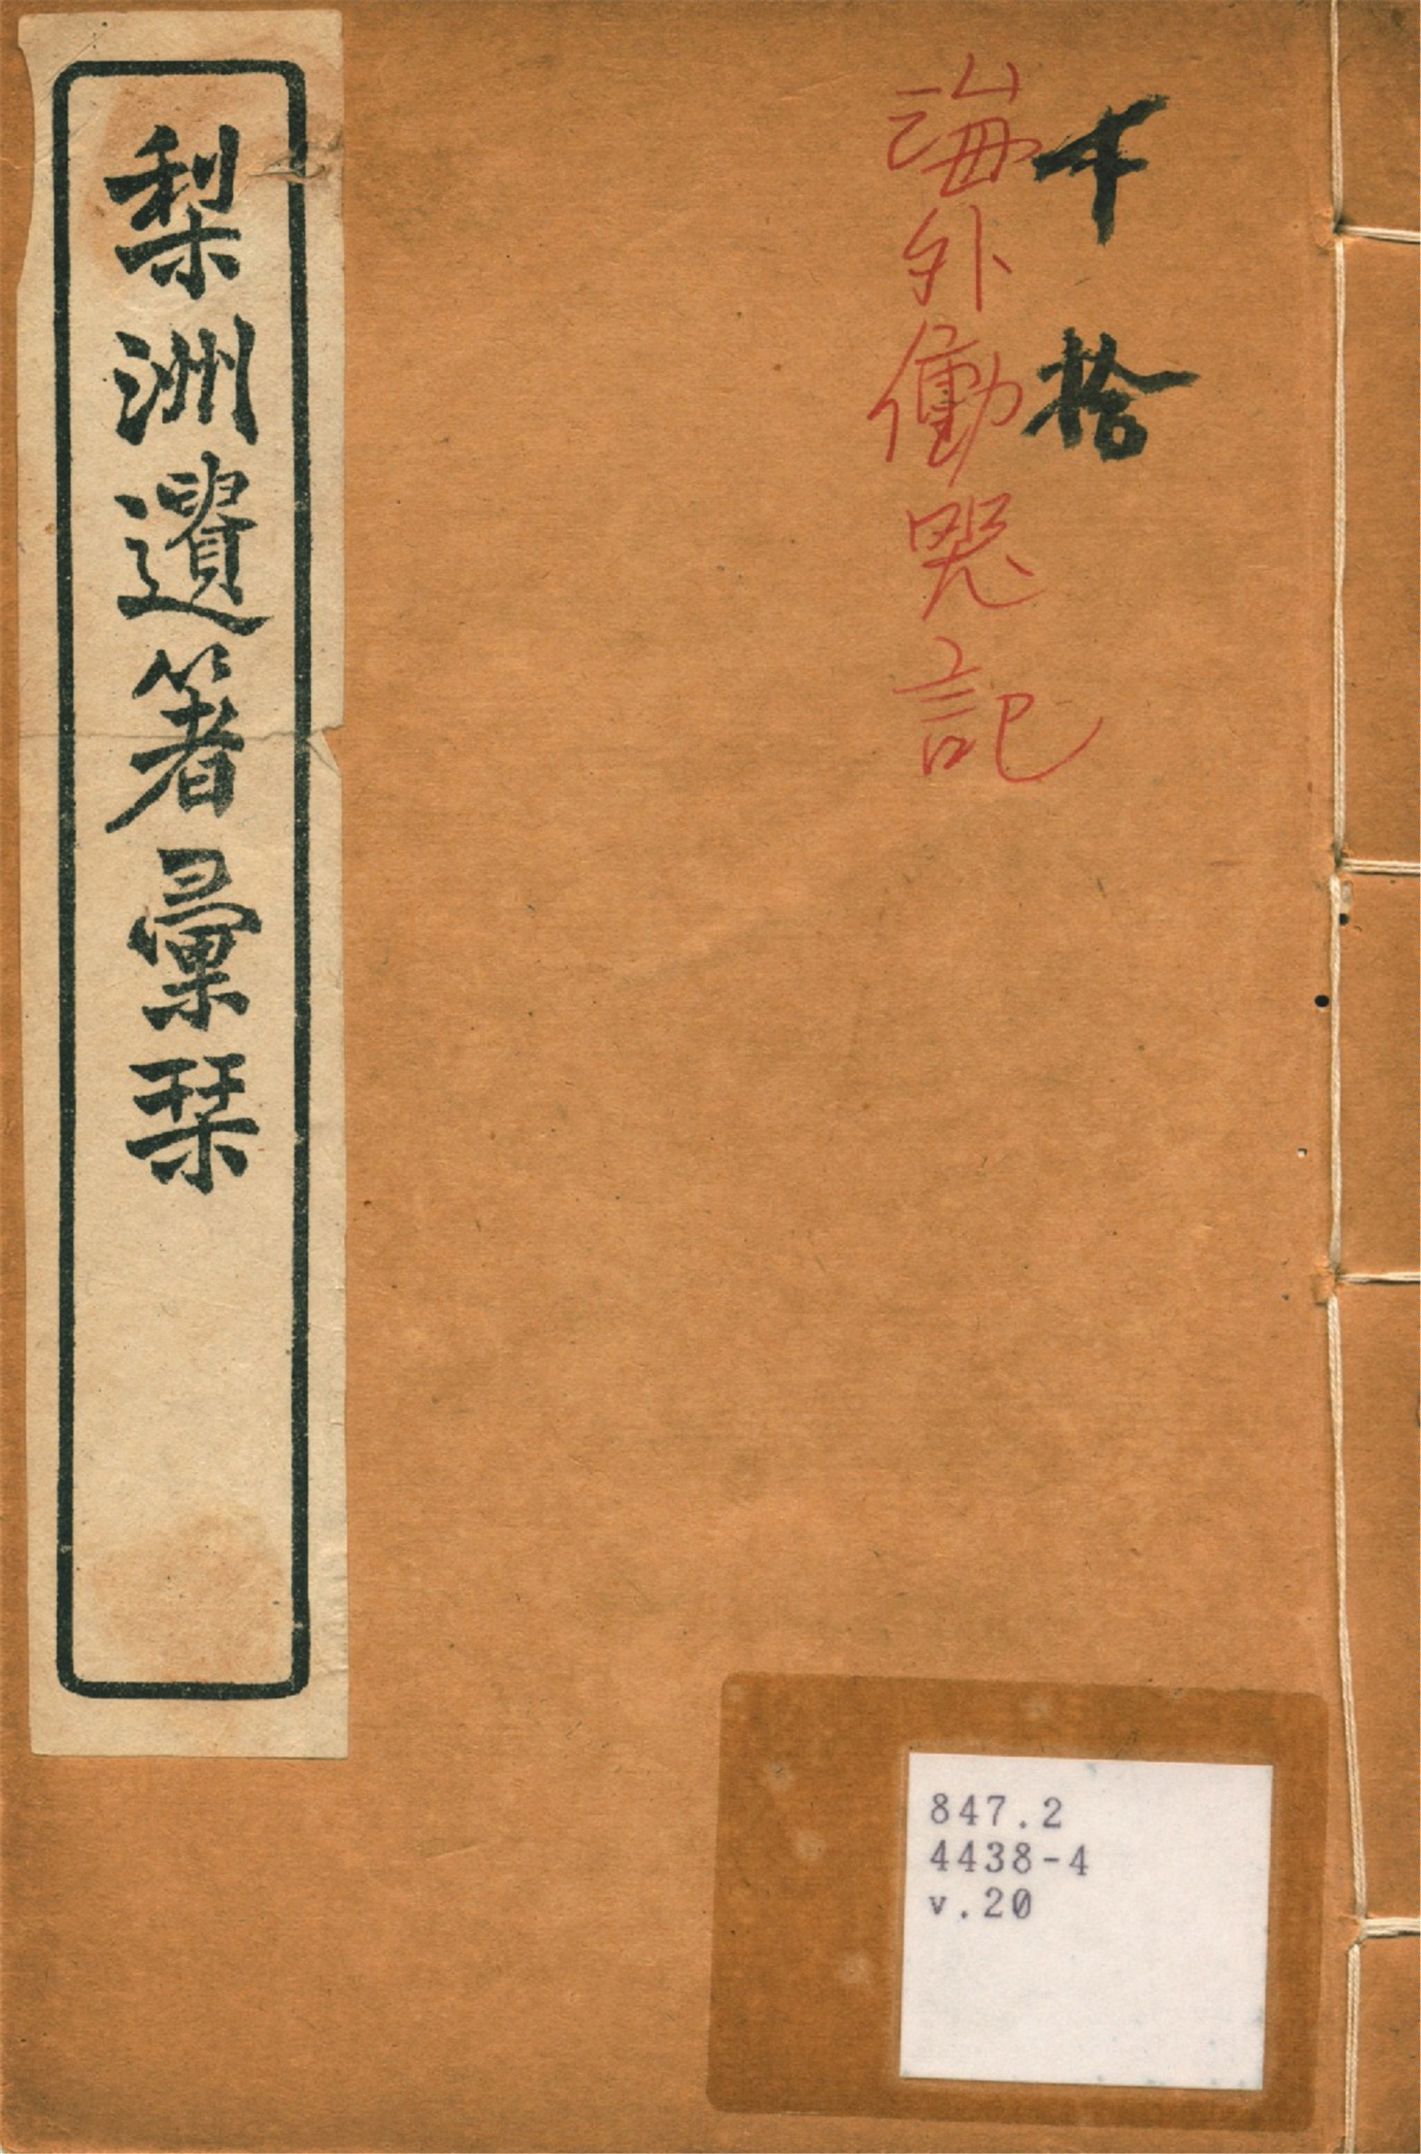 海外慟哭記
拾
梨洲遺著彙栞
847.2
4438-4
v.20